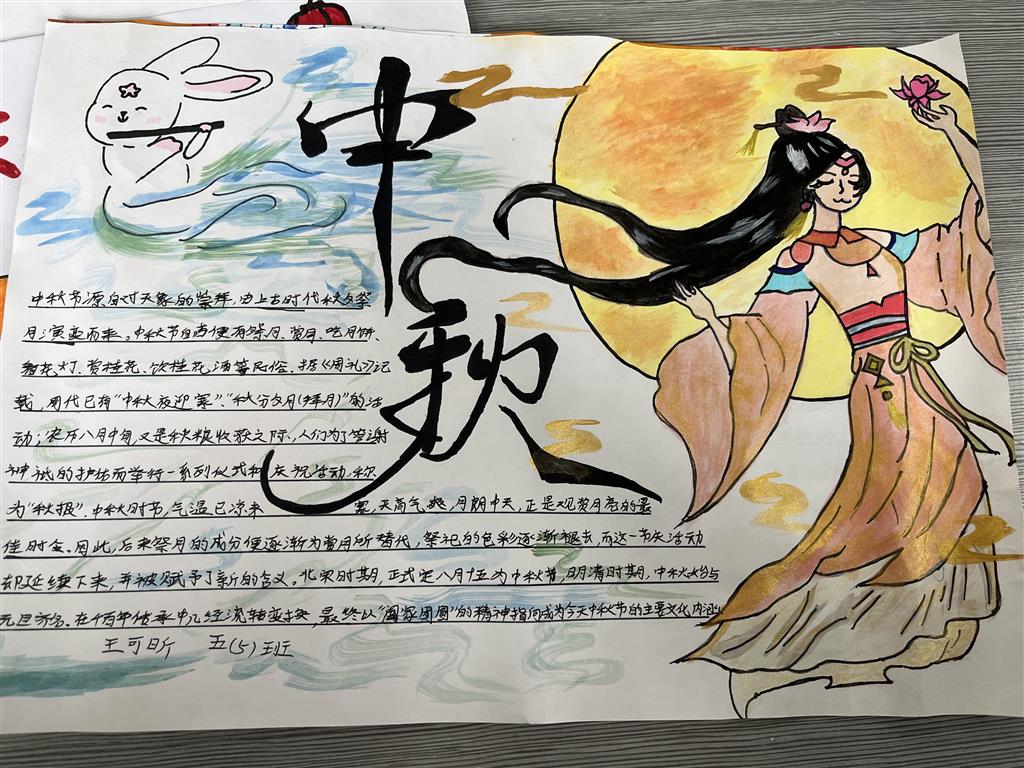 中秋
中秋节源自对天象的崇拜，由上古时代秋夕祭
月演变而来。中秋节自古便有祭月、赏月、吃月饼、
看花灯、赏桂花、饮桂花酒等民俗。据《周礼》记
载，周代已有“中秋夜迎寒”、“秋分夕月(拜月)”的活
动；农历八月中旬，又是秋粮收获之际，人们为了答谢
神祇的护佑而举行一系列仪式和庆祝活动，称
为“秋报”。中秋时节，气温已凉未寒，天高气爽，月朗中天，正是观赏月亮的最
佳时令。因此，后来祭月的成分便逐渐为赏月所替代，祭祀的色彩逐渐褪去，而这一节庆活动
却延续下来，并被赋予了新的含义。北宋时期，正式定八月十五为中秋节，明清时期，中秋始与
元旦齐名。在千百年传承中几经流转变换，最终以“阖家团圆”的精神指向成为今天中秋节的主要文化内涵
王可昕 五(5)班